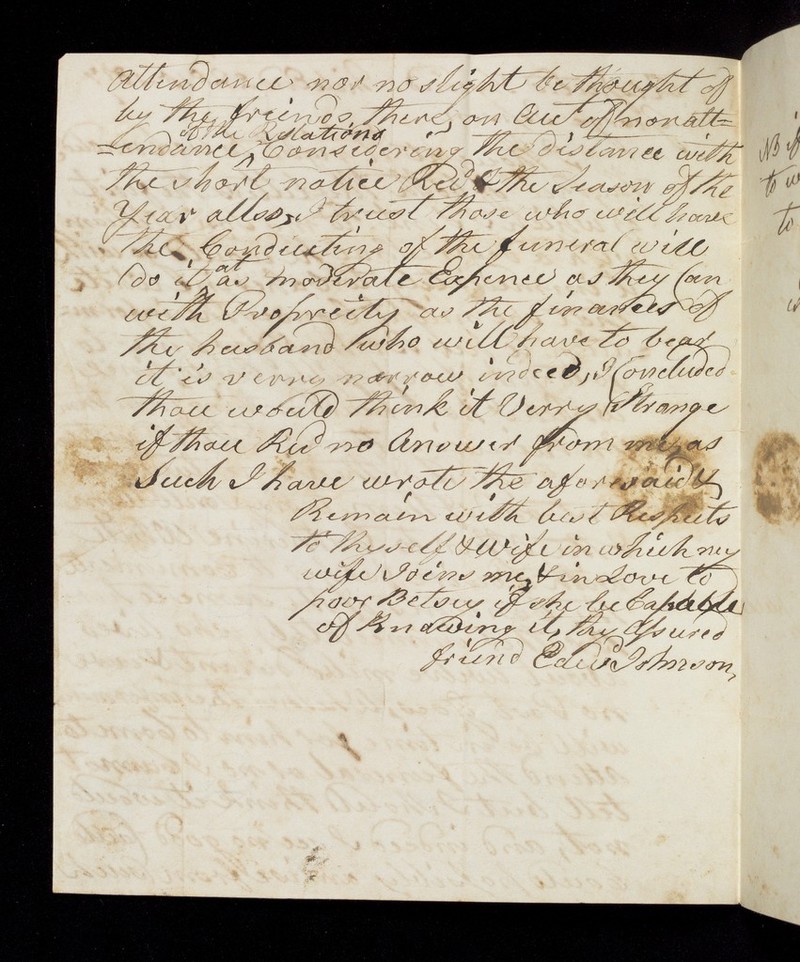 attendance nor no slight be thought of
by the friends there, on Acct of nonatt=
of the Relations
=endance, Considering the distance with
the short notice Recd & the Season of the
Year allso, I trust those who will have
the Conducting of the funeral will
at
do it as moderate Expence as they Can
with Propreity as the finances of
the husband who will have to bear
it is verry narrow indeed, I Concluded
thou would think it Verry Strange
if thou Recd no Answer from me, as
Such I have wrote the aforesaid &
Remain with best Respects
to thyself & Wife in which my
wife Joins me, & in Love to
poor Betsey if she be Capable
of Knowing it, thy Assured
friend Edwd Johnson,
NB if
to
to